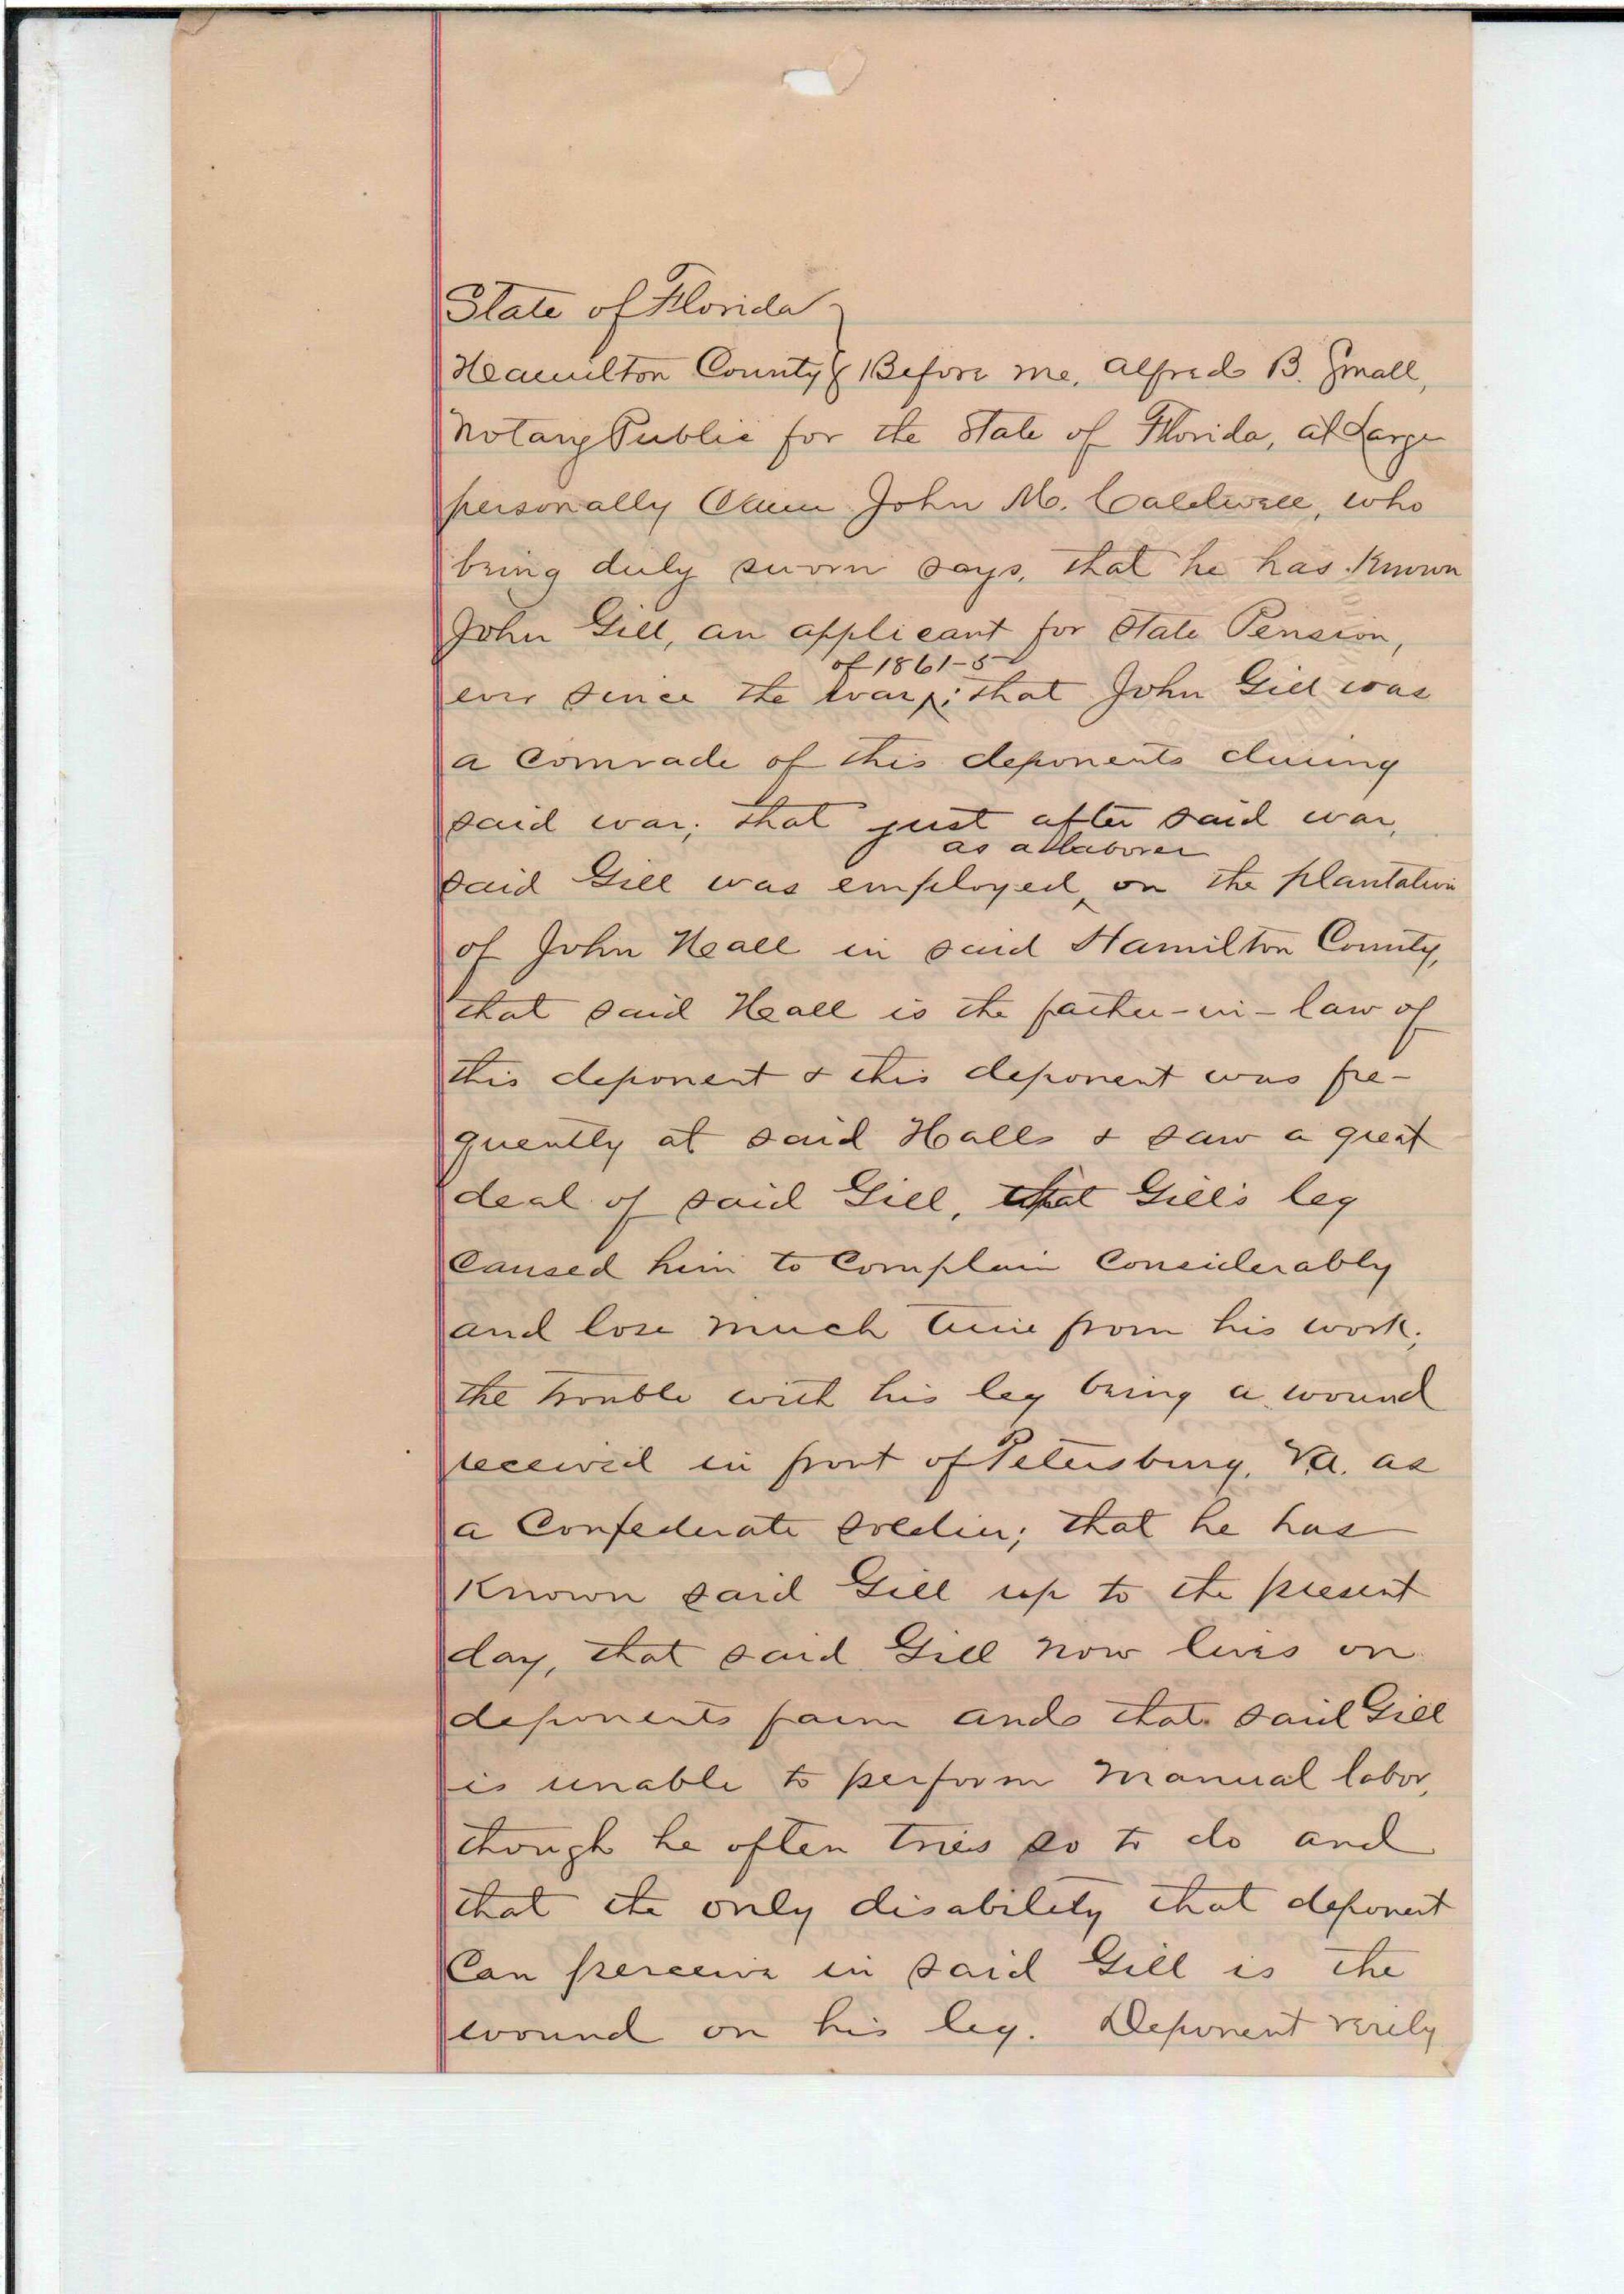 State of Florida }
Hamilton County } Before me, Alfred B. Small,
Notary Public for the State of Florida, at Large
personally came John M. Caldwell, who
being duly sworn says, that he has known
John Gill, an applicant for State Pension,
of 1861-5
ever since the war; that John Gill was
a comrade of this deponents during
said war; that just after said war,
as a laborer
said Gill was employed on the plantation
of John Hall in said Hamilton County,
that said Hall is the father-in-law of
this deponent & this deponent was fre-
quently at said Halls & saw a great
deal of said Gill, that Gill's leg
caused him to complain considerably
and lose much time from his work;
the trouble with his leg being a wound
received in front of Petersburg, Va. as
a Confederate soldier; that he has
known said Gill up to the present
day, that said Gill now lives on
deponents farm and that said Gill
is unable to perform manual labor,
though he often tries so to do and
that the only disability that deponent
can perceive in said Gill is the
wound on his leg. Deponent verily